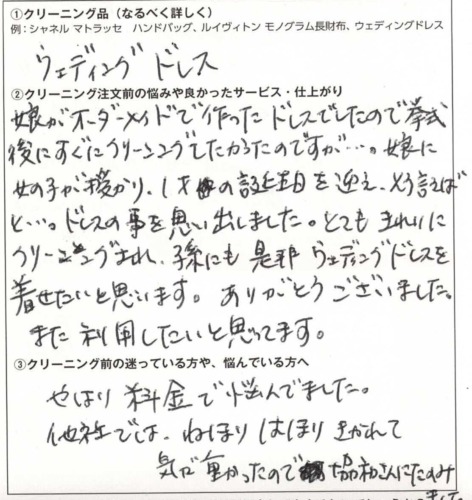 ①クリーニング品（なるべく詳しく）
例：シャネル マトラッセ　ハンドバッグ、ルイヴィトン モノグラム長財布、ウェディングドレス
ウェディング ドレス
②クリーニング注文前の悩みや良かったサービス・仕上がり
娘がオーダーメイドで作ったドレスでしたので挙式
後にすぐにクリーニングしたかったのですが…。娘に
女の子が授かり、1才の誕生日を迎え、そう言えば
と…。ドレスの事を思い出しました。とてもきれいに
クリーニングされ、孫にも是非ウェディングドレスを
着せたいと思います。ありがとうございました。
また利用したいと思ってます。
③クリーニング前の迷っている方や、悩んでいる方へ
やはり料金で悩んでました。
他社では、ねほりはほりきかれて
気が重かったので協和さんにたのみ